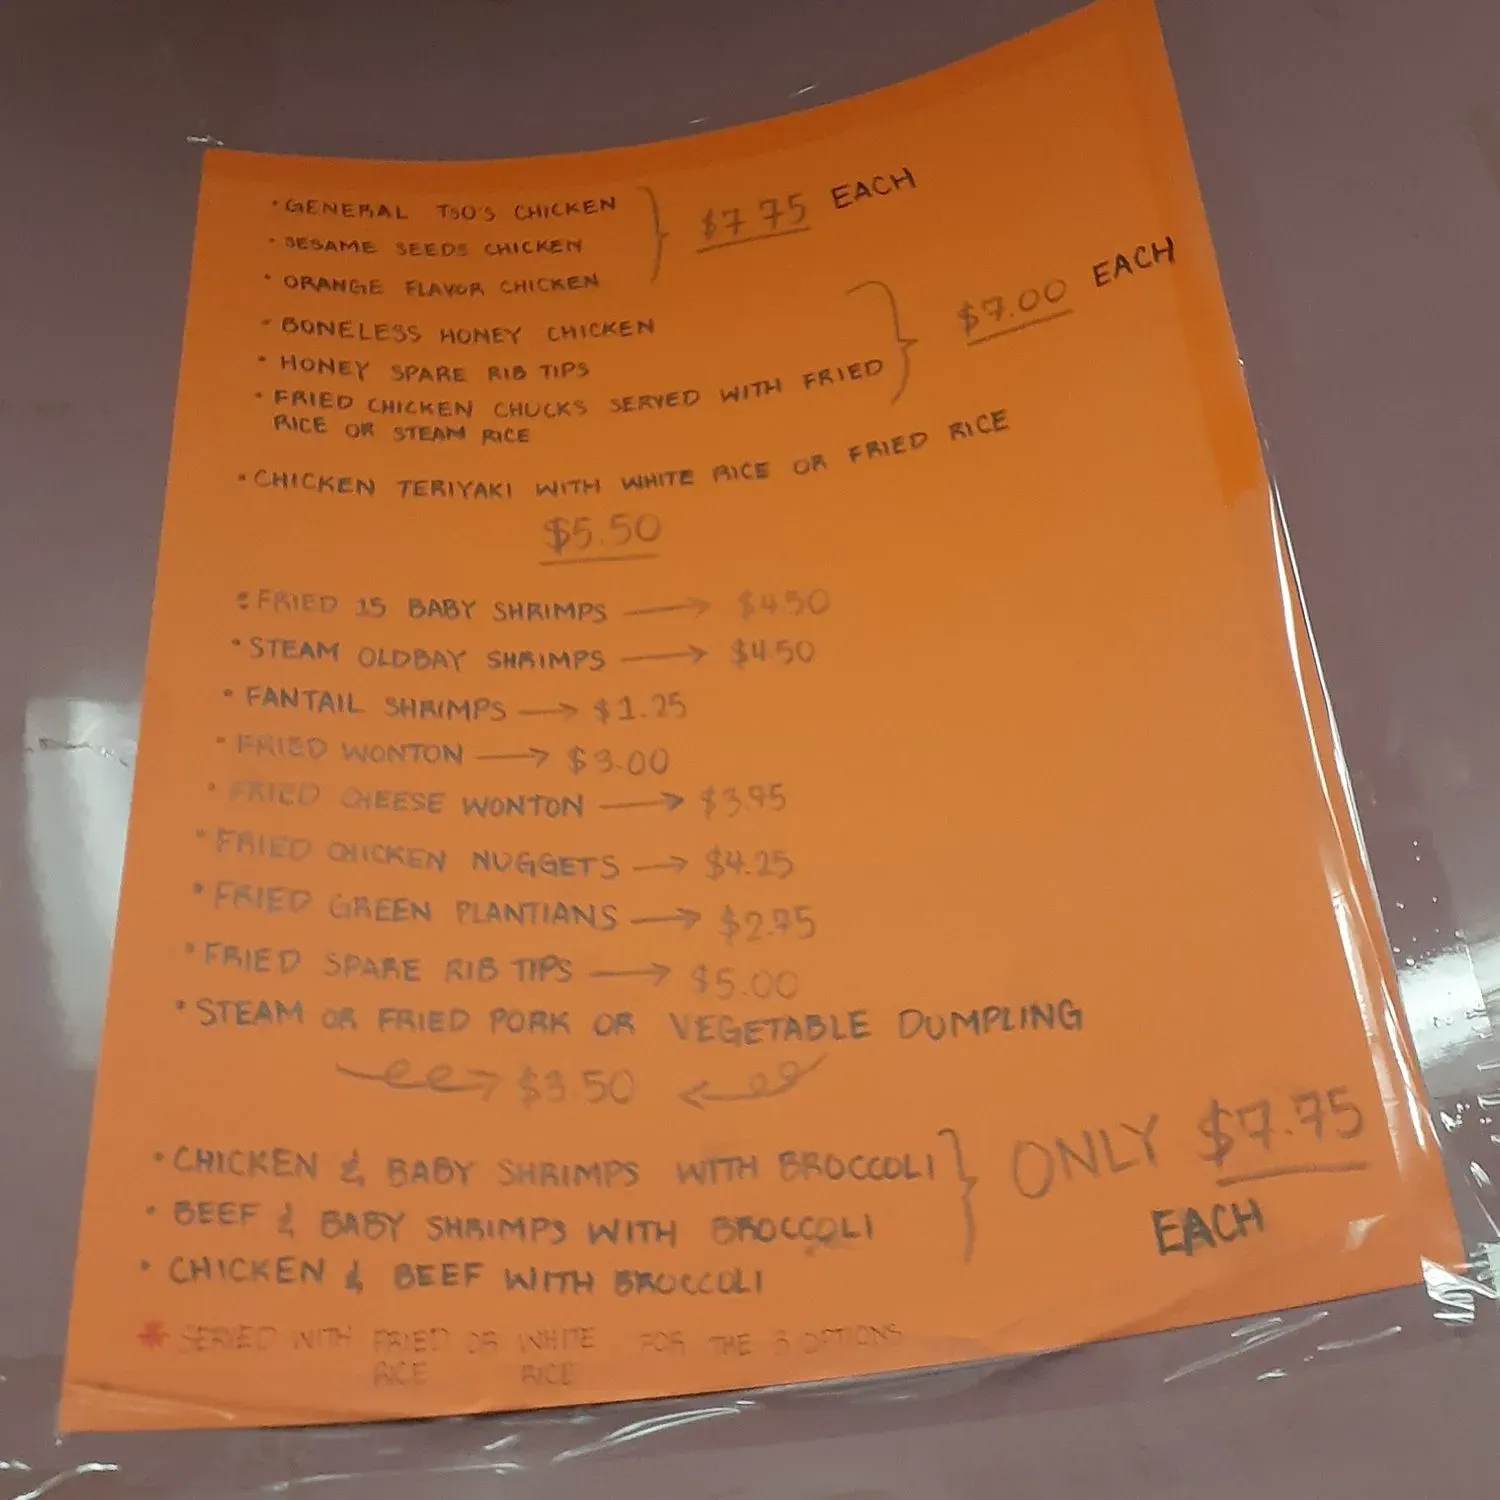 • GENERAL TSO'S CHICKEN
• SESAME SEEDS CHICKEN
• ORANGE FLAVOR CHICKEN
$7.75 EACH
• BONELESS HONEY CHICKEN
• HONEY SPARE RIB TIPS
• FRIED CHICKEN CHUCKS SERVED WITH FRIED
RICE OR STEAM RICE
$7.00 EACH
• CHICKEN TERIYAKI WITH WHITE RICE OR FRIED RICE
$5.50
• FRIED 15 BABY SHRIMPS → $4.50
• STEAM OLDBAY SHRIMPS → $4.50
• FANTAIL SHRIMPS → $1.25
• FRIED WONTON → $3.00
• FRIED CHEESE WONTON → $3.95
• FRIED CHICKEN NUGGETS → $4.25
• FRIED GREEN PLANTIANS → $2.75
• FRIED SPARE RIB TIPS → $5.00
• STEAM OR FRIED PORK OR VEGETABLE DUMPLING
$3.50
• CHICKEN & BABY SHRIMPS WITH BROCCOLI
• BEEF & BABY SHRIMPS WITH BROCCOLI
• CHICKEN & BEEF WITH BROCCOLI
ONLY $7.75
EACH
* SERVED WITH FRIED OR WHITE FOR THE 3 OPTIONS
RICE RICE